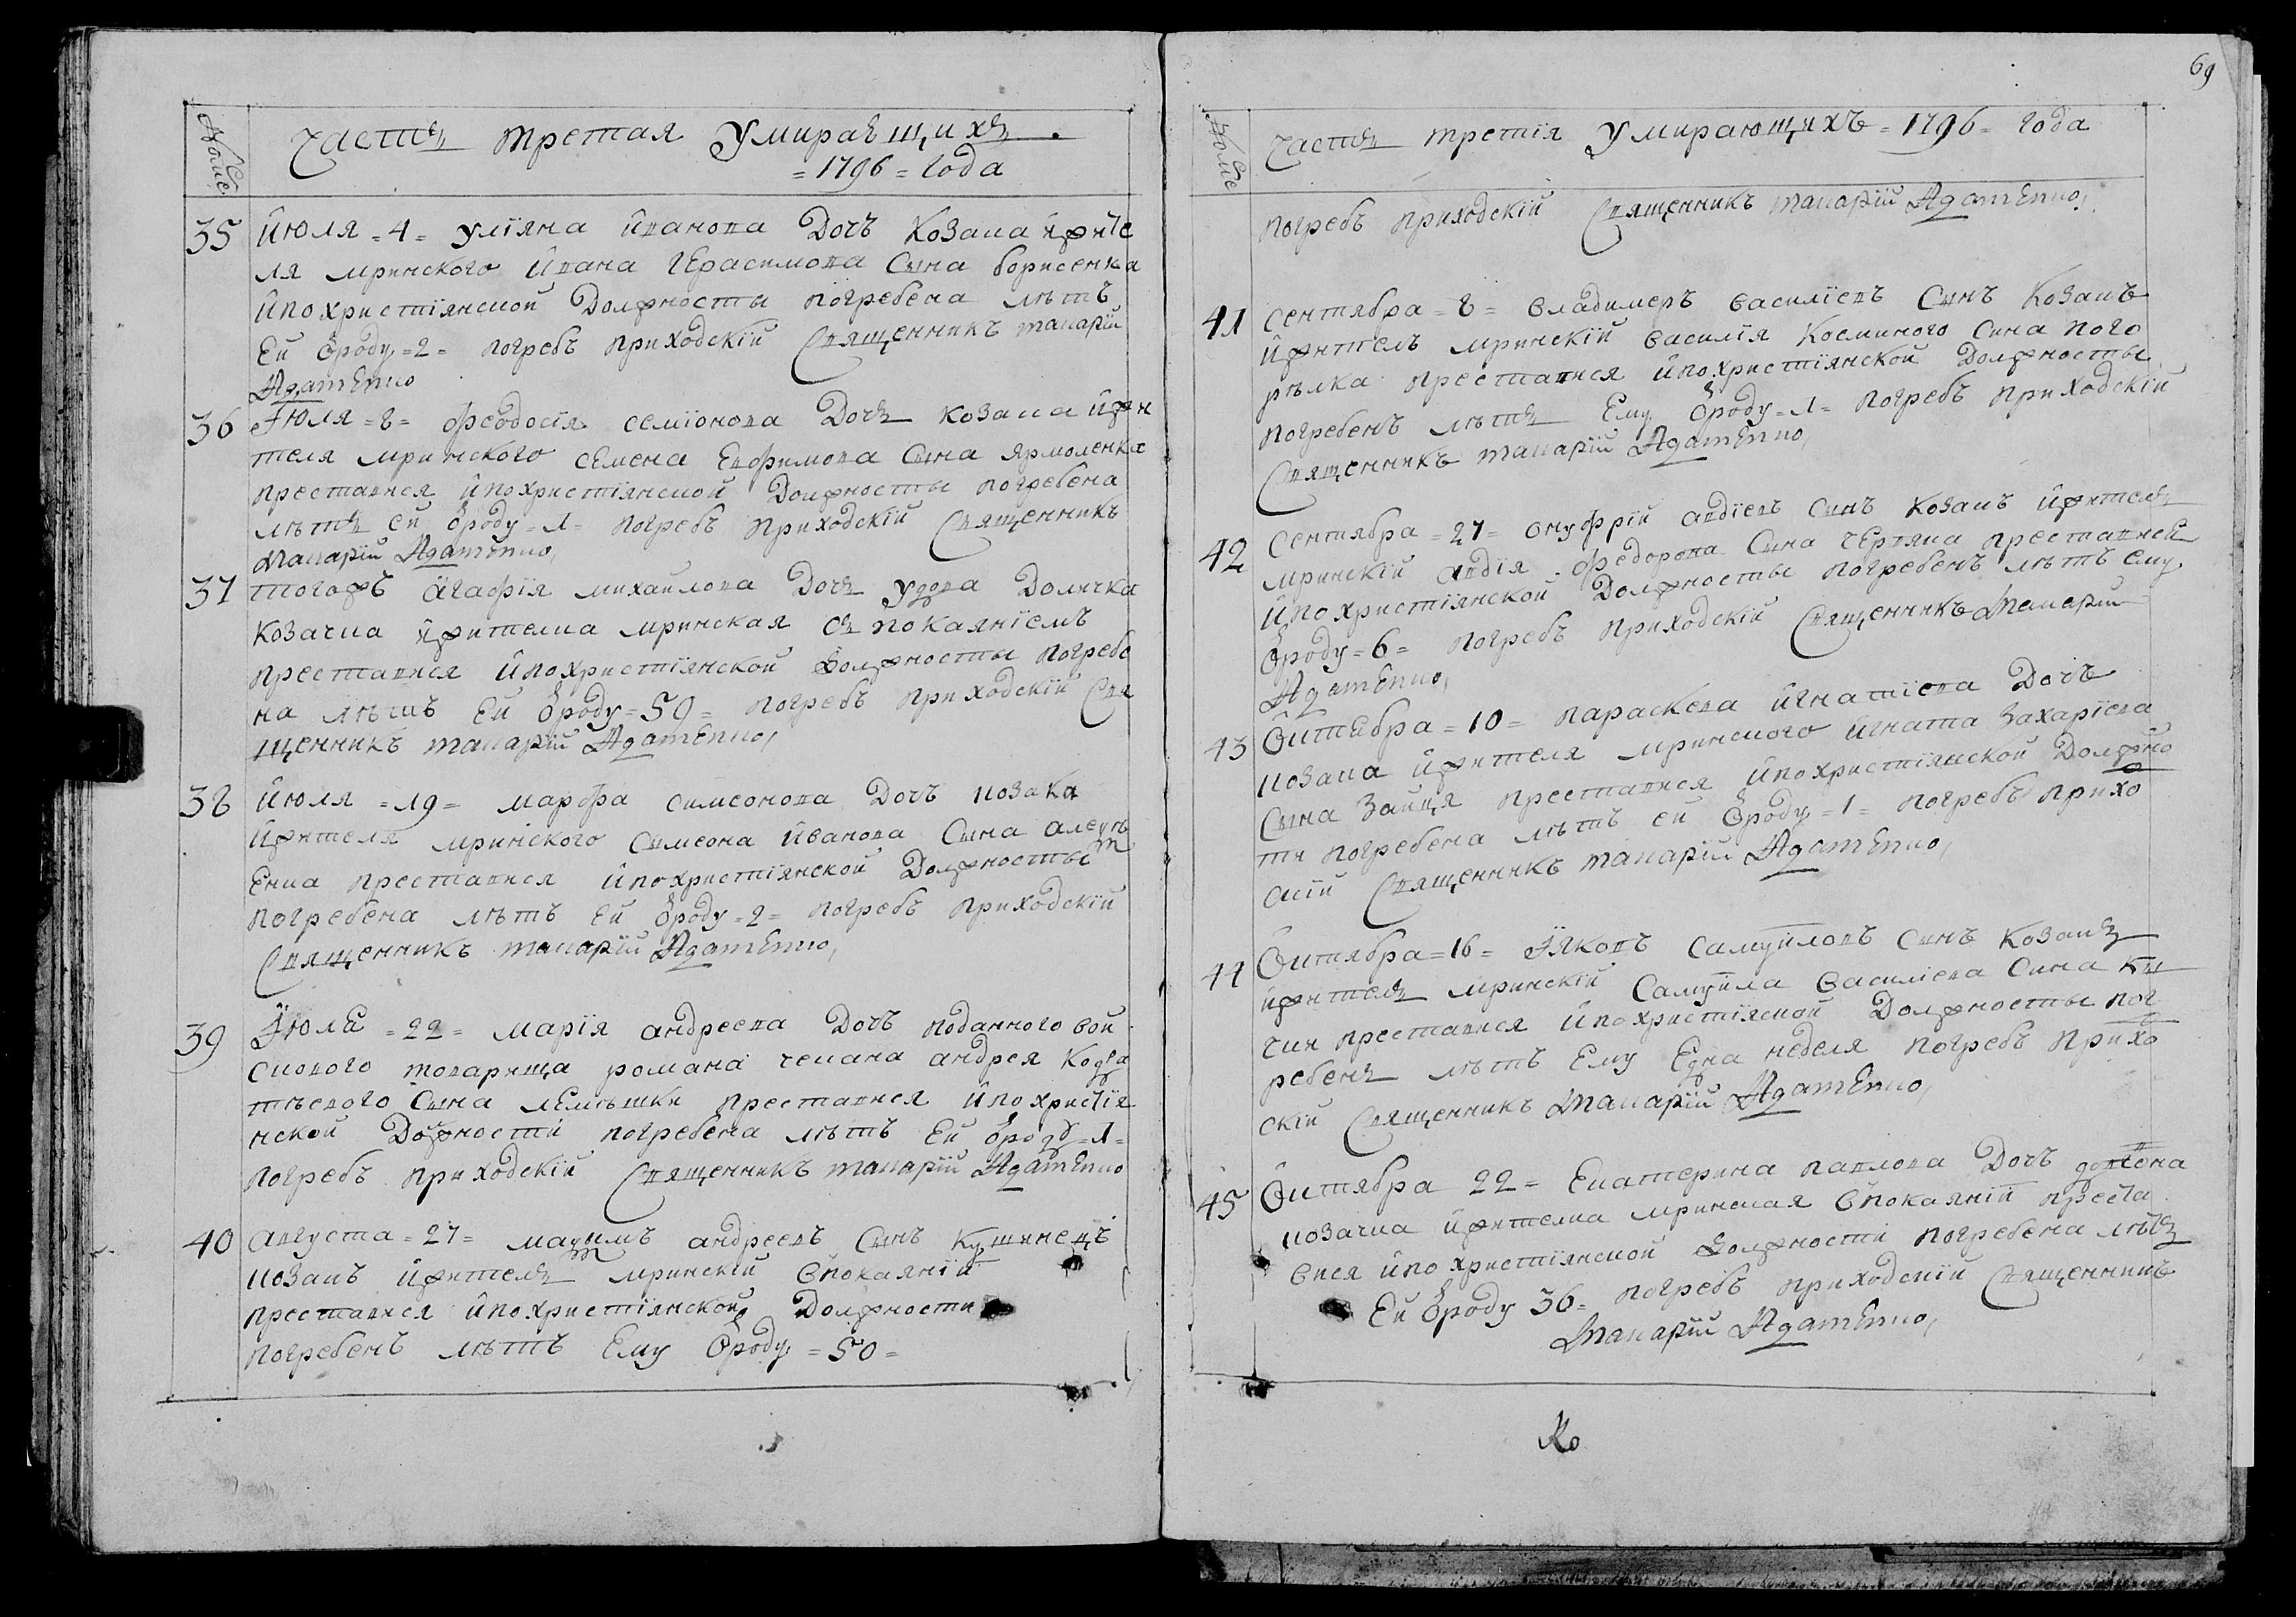 Номе
Часть третая умираещихъ
= 1796 = года
35 июля =4= улїяна иванова дочъ козака ижите
ля мринского ивана герасимова сына борисенка
ипохристїянской должносты погребена лѣтъ
ей ѿроду =2= погребъ приходскїй священникъ макарїй
Адаменко
36 Июля =8= феодосїя семїонова дочь козака ижи
теля мринского семена евфимова сына ярмоленка
преставися ипохристїянской должносты погребена
лѣть ей ѿроду =1= погребъ приходскїй священникъ
макарїй Адаменко,
37 тогожъ агафїя михайлова дочь удова
козачка ижителка мринская съ покаянїемъ
преставися ипохристїянской должносты погребе
на лѣтъ ей ѿроду =59= погребъ приходскїй свя
щенникъ макарїй Адаменко,
38 июля =19= марфа симеонова дочъ козака
ижителя мринского симеона иванова сына
енка преставися ипохристїянской должносты
погребена лѣтъ ей ѿроду =2= погребъ приходскїй
священникъ макарїй Адаменко,
39 Июля =22= марїя андреева дочъ поданного вой
скового товарища романа андрея кодра
тѣевого сына лемѣшки преставися ипохристїя
нской должности погребена лѣтъ ей ѿроду =1=
погребъ приходскїй священникъ макарїй Адаменко
40 августа =27= андреевъ сынъ
козакъ ижитель мринскїй впокаянїи
преставися ипохристїянской должности
погребенъ лѣтъ ему ѿроду =50=
69
Номе
Часть третїя умирающихъ =1796= года
погребъ приходскїй священникъ макарїй Адаменко,
41 сентября =8= владимеръ василїевъ синъ козакъ
ижителъ мринскїй василїя косминого сина пого
рѣлка преставися ипохристїянской должносты
погребенъ лѣть ему ѿроду =1= погребъ приходскїй
священникъ макарїй Адаменко,
42 сентября =27= онуфрїй авдїевъ синъ козакъ ижитель
мринскїй авдїя федорова сина червяка преставися
ипохристїянской должносты погребенъ лѣтъ ему
ѿроду =6= погребъ приходскїй священникъ макарїй
Адаменко,
43 Октебра =10= параскева игнатїева дочъ
козака ижителя мринского игната захарїева
сына зайця преставися ипохристїянской должно
ти погребена лѣтъ ей ѿроду =1= погребъ прихо
скїй священникъ макарїй Адаменко,
44 Октября =16= Їяковъ самуйловъ синъ козакъ
ижитель мринскїй самуйла василїева сина
преставися ипохристїяской должносты пог
ребень лѣтъ ему една неделя погребъ прихо
скїй священникъ макарїй Адаменко,
45 Октября 22= екатерина павлова дочъ
козачка ижителка мринская впокаянїй преста
вися ипохристїянской должности погребена лѣть
ей ѿроду 36= погребъ приходскїй священникъ
макарїй Адаменко,
Ко